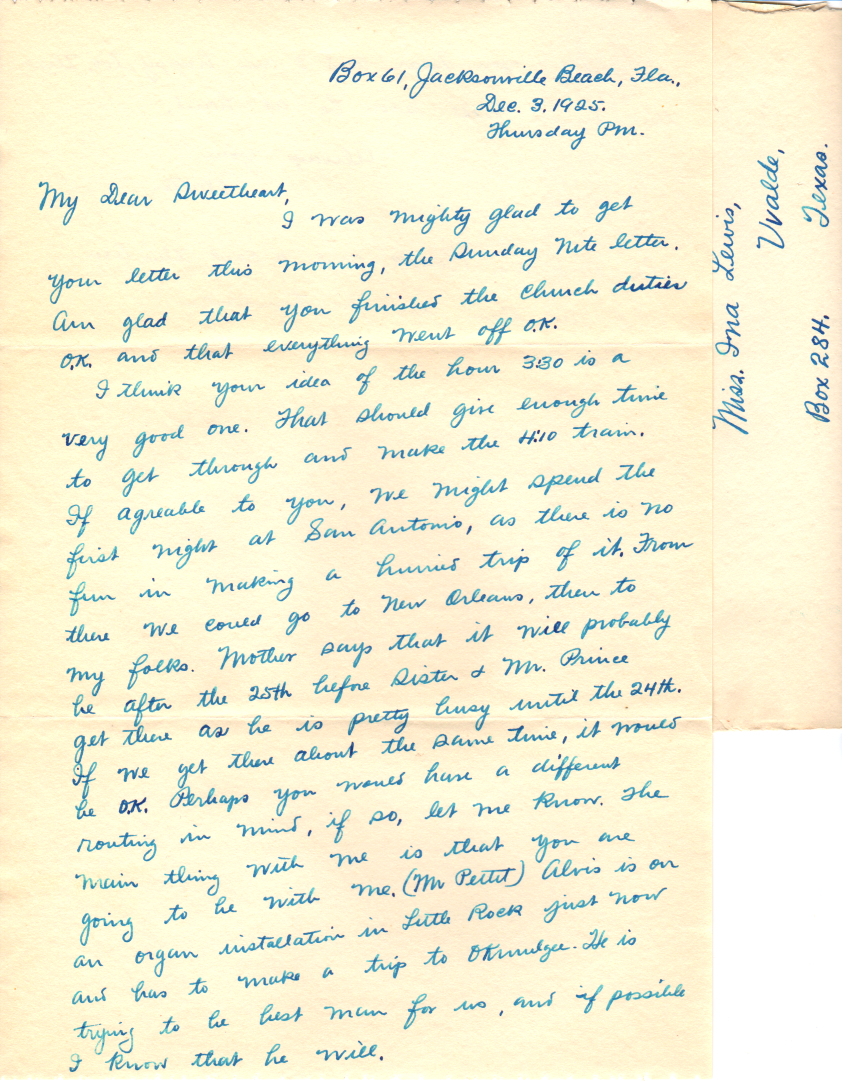 Box 61, Jacksonville Beach, Fla.,
Dec. 3. 1925.
Thursday Pm.
My Dear Sweetheart,
I was mighty glad to get
your letter this morning, the Sunday Nite letter.
Am glad that you finished the church duties
O.K. and that everything went off O.K.
I think your idea of the hour 3:30 is a
very good one. That should give enough time
to get through and make the 4:10 train.
If agreable to you, we might spend the
first night at San Antonio, as there is no
fun in making a hurried trip of it. From
there we could go to New Orleans, then to
my folks. Mother says that it will probably
be after the 25th before Sister & Mr. Prince
get there as he is pretty busy until the 24th.
If we get there about the same time, it would
be O.K. Perhaps you would have a different
routing in mind, if so, let me know. The
main thing with me is that you are
going to be with me. (Mr Pettit) Alvis is on
an organ installation in Little Rock just now
and has to make a trip to Okmulgee. He is
trying to be best man for us, and if possible
I know that he will.
Miss. Ina Lewis,
Uvalde,
Box 284. Texas.